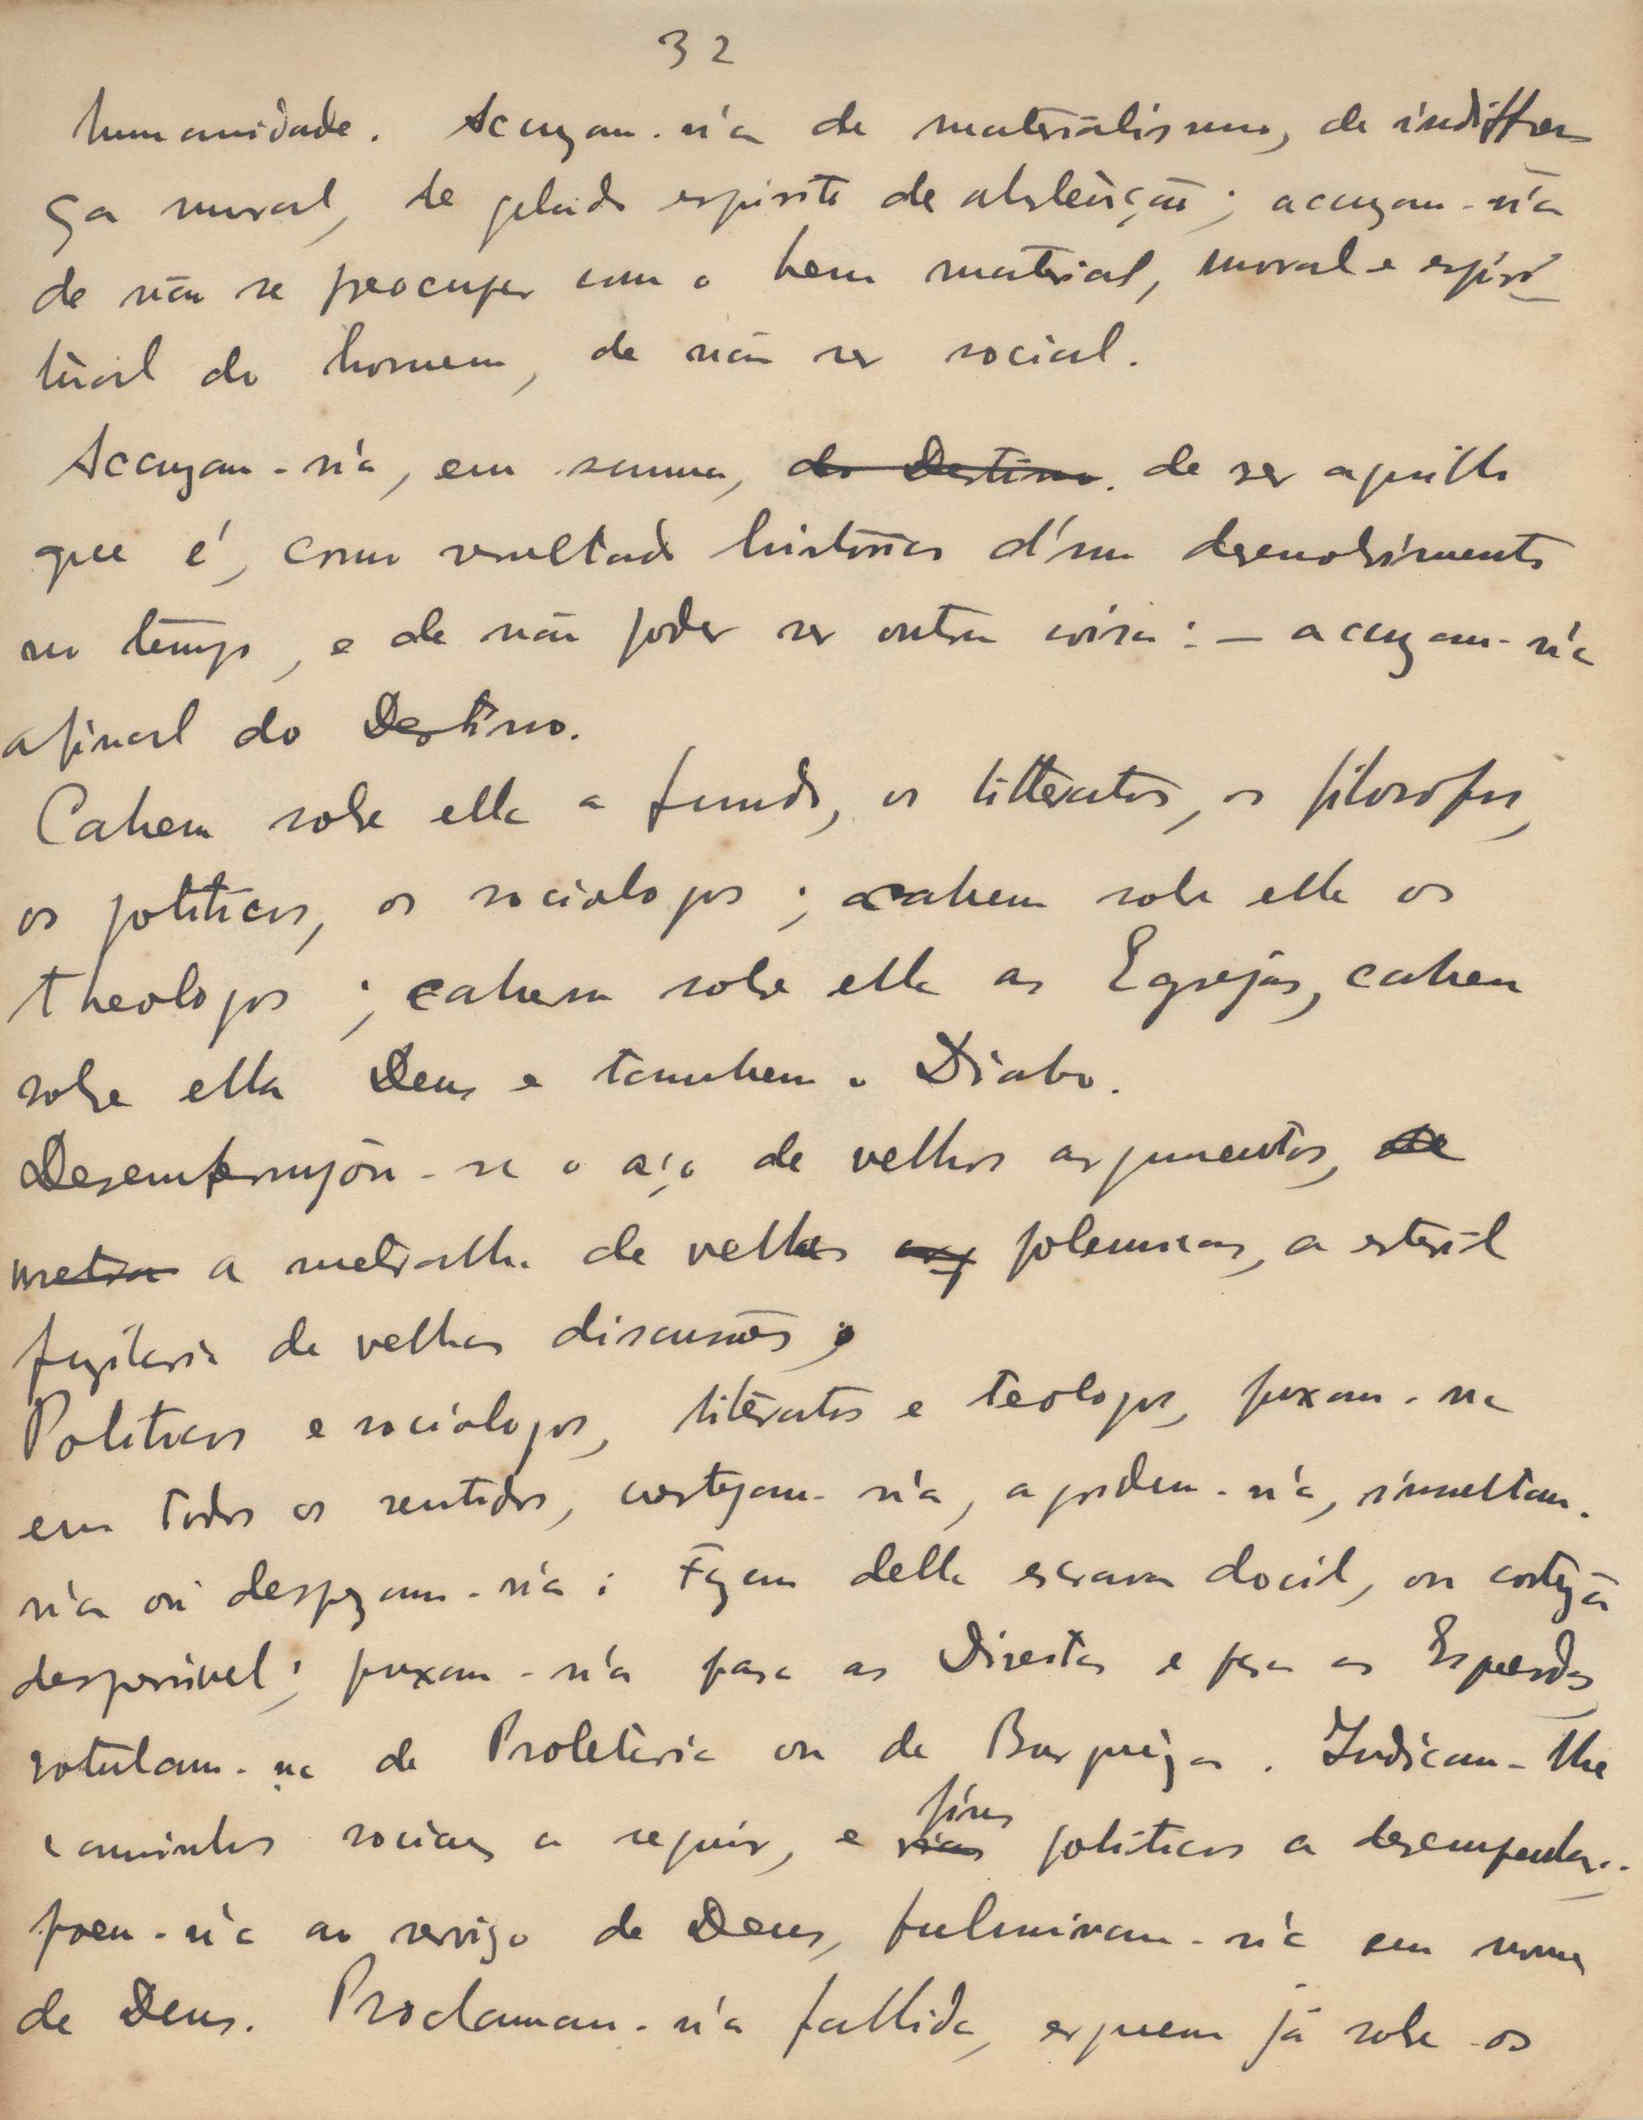 32
humanidade. Accuzam-n'a de materialismo, de indifferen
ça moral, de gelado espirito de abstenção; accuzam-n'a
de não se preocupar com o bem material, moral e espiri
tual do homem, de não ser social.
Accuzam-n'a, em summa, do Destino. de ser aquillo
que é, como resultado historico d'um desenvolvimento
no tempo, e de não poder ser outra coisa: — accuzam-n'a
afinal do Destino.
Cahem sobre ella a fundo, os litteratos, os filosofos,
os politicos, os sociologos; cahem sobre ella os
theologos; cahem sobre ella as Egrejas, cahem
sobre ella Deus e tambem o Diabo.
Desemferrujou-se o aço de velhos argumentos, de
metra a metralha de velhas arg polemicas, a esteril
fuzilaria de velhas discussões;
Politicos e sociologos, literatos e teologos, puxam-na
em todos os sentidos, cortejam-n'a, apodam-n'a, insultam-
n'a ou desprezam-n'a: Fazem della escrava docil, ou cortezã
desprezivel; puxam-n'a para as Direitas e para as Esquerdas,
rotulam-na de Proletaria ou de Burgueza. Indicam-lhe
caminhos sociaes a seguir, e vias fins politicos a desempenhar..
poem-n'a ao serviço de Deus, fulminam-n'a em nome
de Deus. Proclamam-n'a fallida, erguem já sobre os